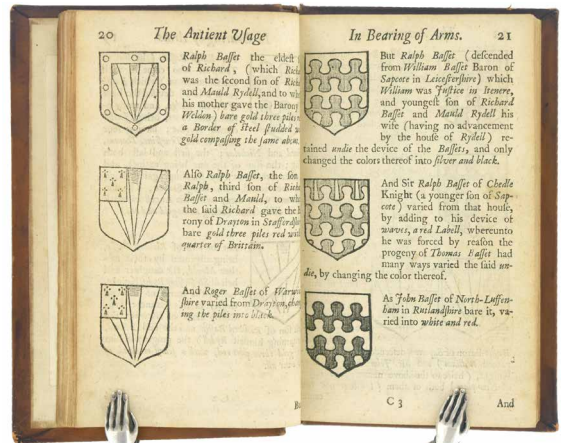 20 The Antient Uſage
Ralph Baſſet the eldeſt
of Richard, (which
was the ſecond ſon of
and Mauld Rydell, and to
his mother gave the
Weldon) bare gold three piles
a Border of Steel ſtudded
gold compaſſing the ſame
Alſo Ralph Baſſet, the ſon
Ralph, third ſon of
Baſſet and Mauld, to
the ſaid Richard gave the
rony of Drayton in
bare gold three piles red
quarter of Brittain.
And Roger Baſſet of
ſhire varied from Drayton,
ing the piles into black.
In Bearing of Arms. 21
But Ralph Baſſet (deſcended
from William Baſſet Baron of
Sapcote in Leiceſterſhire) which
William was Juſtice in Itenere,
and youngeſt ſon of Richard
Baſſet and Mauld Rydell his
wife (having no advancement
by the houſe of Rydell) re-
tained undie the device of the Baſſets, and only
changed the colors thereof into ſilver and black.
And Sir Ralph Baſſet of Chedle
Knight (a younger ſon of Sap-
cote) varied from that houſe,
by adding to his device of
waves, a red Labell, whereunto
he was forced by reaſon the
progeny of Thomas Baſſet had
many ways varied the ſaid un-
die, by changing the color thereof.
As John Baſſet of North-Luffen-
ham in Rutlandſhire bare it, va-
ried into white and red.
C 3 And